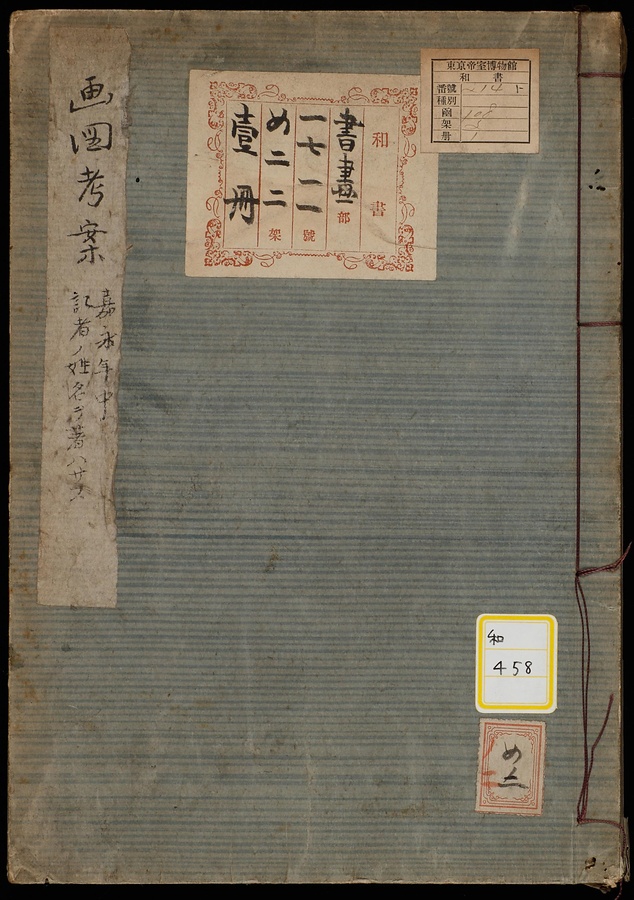 画図考案
嘉永年中
記者ノ姓名ヲ著ハサス
和書
書畫部
一七一一號
め二二架
壹冊
東京帝室博物館
和書
番號
種別
函
架
冊
和
458
め二